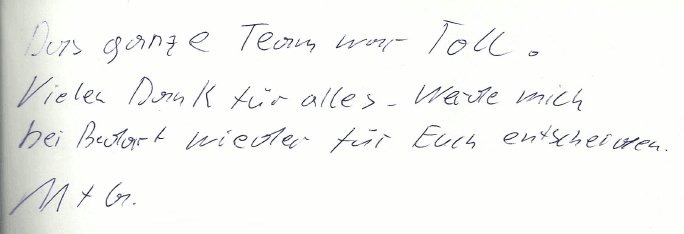 Das ganze Team war Toll.
Vielen Dank für alles - Werde mich
bei Bedarf wieder für Euch entscheiden.
M + G.